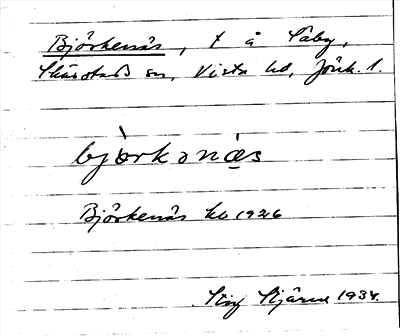 Björkenäs, t å Säby,
Skärstads sn, Vista hd, Jönk. l.
bjòrkənä̱s
Björkenäs kb 1926
Stig Stjärne 1934.